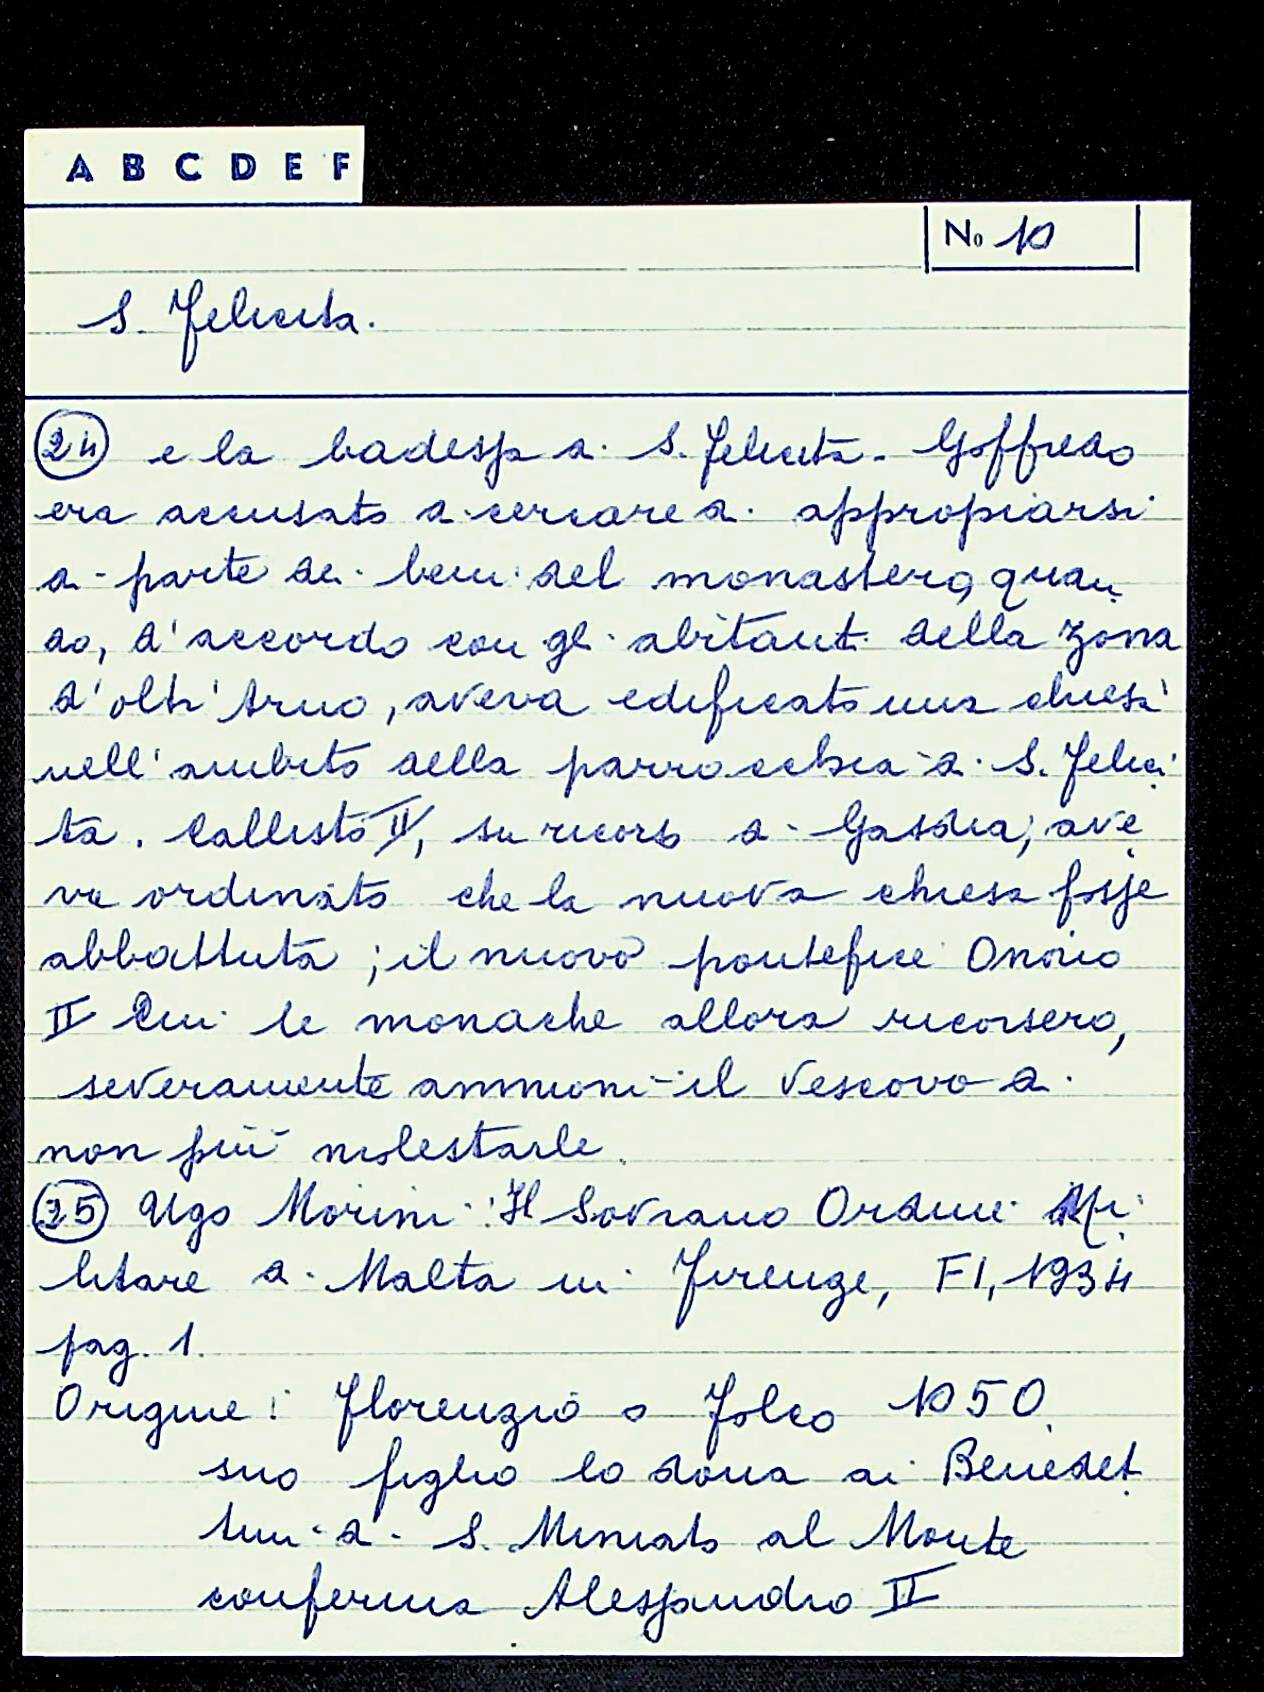 A B C D E F
No 10
S. Felicita.
24 e la badessa di S. Felicita. Goffredo
era accusato di cercare di appropiarsi
di parte dei beni del monastero, quan
do, d'accordo con gli abitanti della zona
d'oltr'Arno, aveva edificato una chiesa
nell'ambito della parrocchia di S. Felici
ta. Callisto II, su ricorso di Gasdia, ave
va ordinato che la nuova chiesa fosse
abbattuta; il nuovo pontefice Onorio
II cui le monache allora ricorsero,
severamente ammonì il vescovo di
non più molestarle.
25 Ugo Morini: Il Sovrano Ordine Mi
litare di Malta in Firenze, FI, 1934
pag. 1.
Origine: Florenzio o Folco 1050
suo figlio lo dona ai Benedet
tini di S. Miniato al Monte
conferma Alessandro II